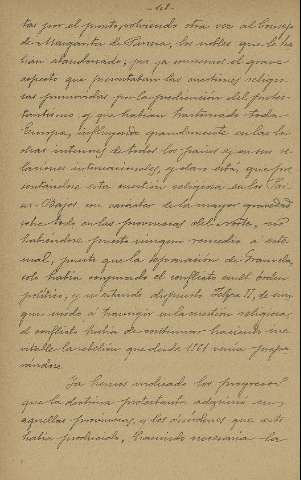 - 48 -
tas por el pronto, volviendo otra vez al Consejo
de Margarita de Parma, los nobles que le ha-
bían abandonado, por ya conocemos el grave
aspecto que presentaban las cuestiones religio-
sas promovidas por la predicación del protes-
tantismo y que habían trastornado toda
Europa, influyendo grandemente en las lu-
chas interiores de todos los países y en sus re-
laciones internacionales, y claro está, que pre-
sentándose esta cuestión religiosa en los Paí-
ses-Bajos con carácter de la mayor gravedad
sobre todo en las provincias del Norte, no
habiéndose puesto ningún remedio a este
mal, puesto que la separación de Granvela,
solo había conjurado el conflicto en el orden
político, y no estando dispuesto Felipe II, de nin-
gún modo a transigir en la cuestión religiosa,
el conflicto había de continuar haciendo ine-
vitable la rebelión que desde 1561 venía prepa-
rándose.
Ya hemos indicado los progresos
que la doctrina protestante adquiría en
aquellas provincias, y los desórdenes que esto
había producido, haciendo necesaria la